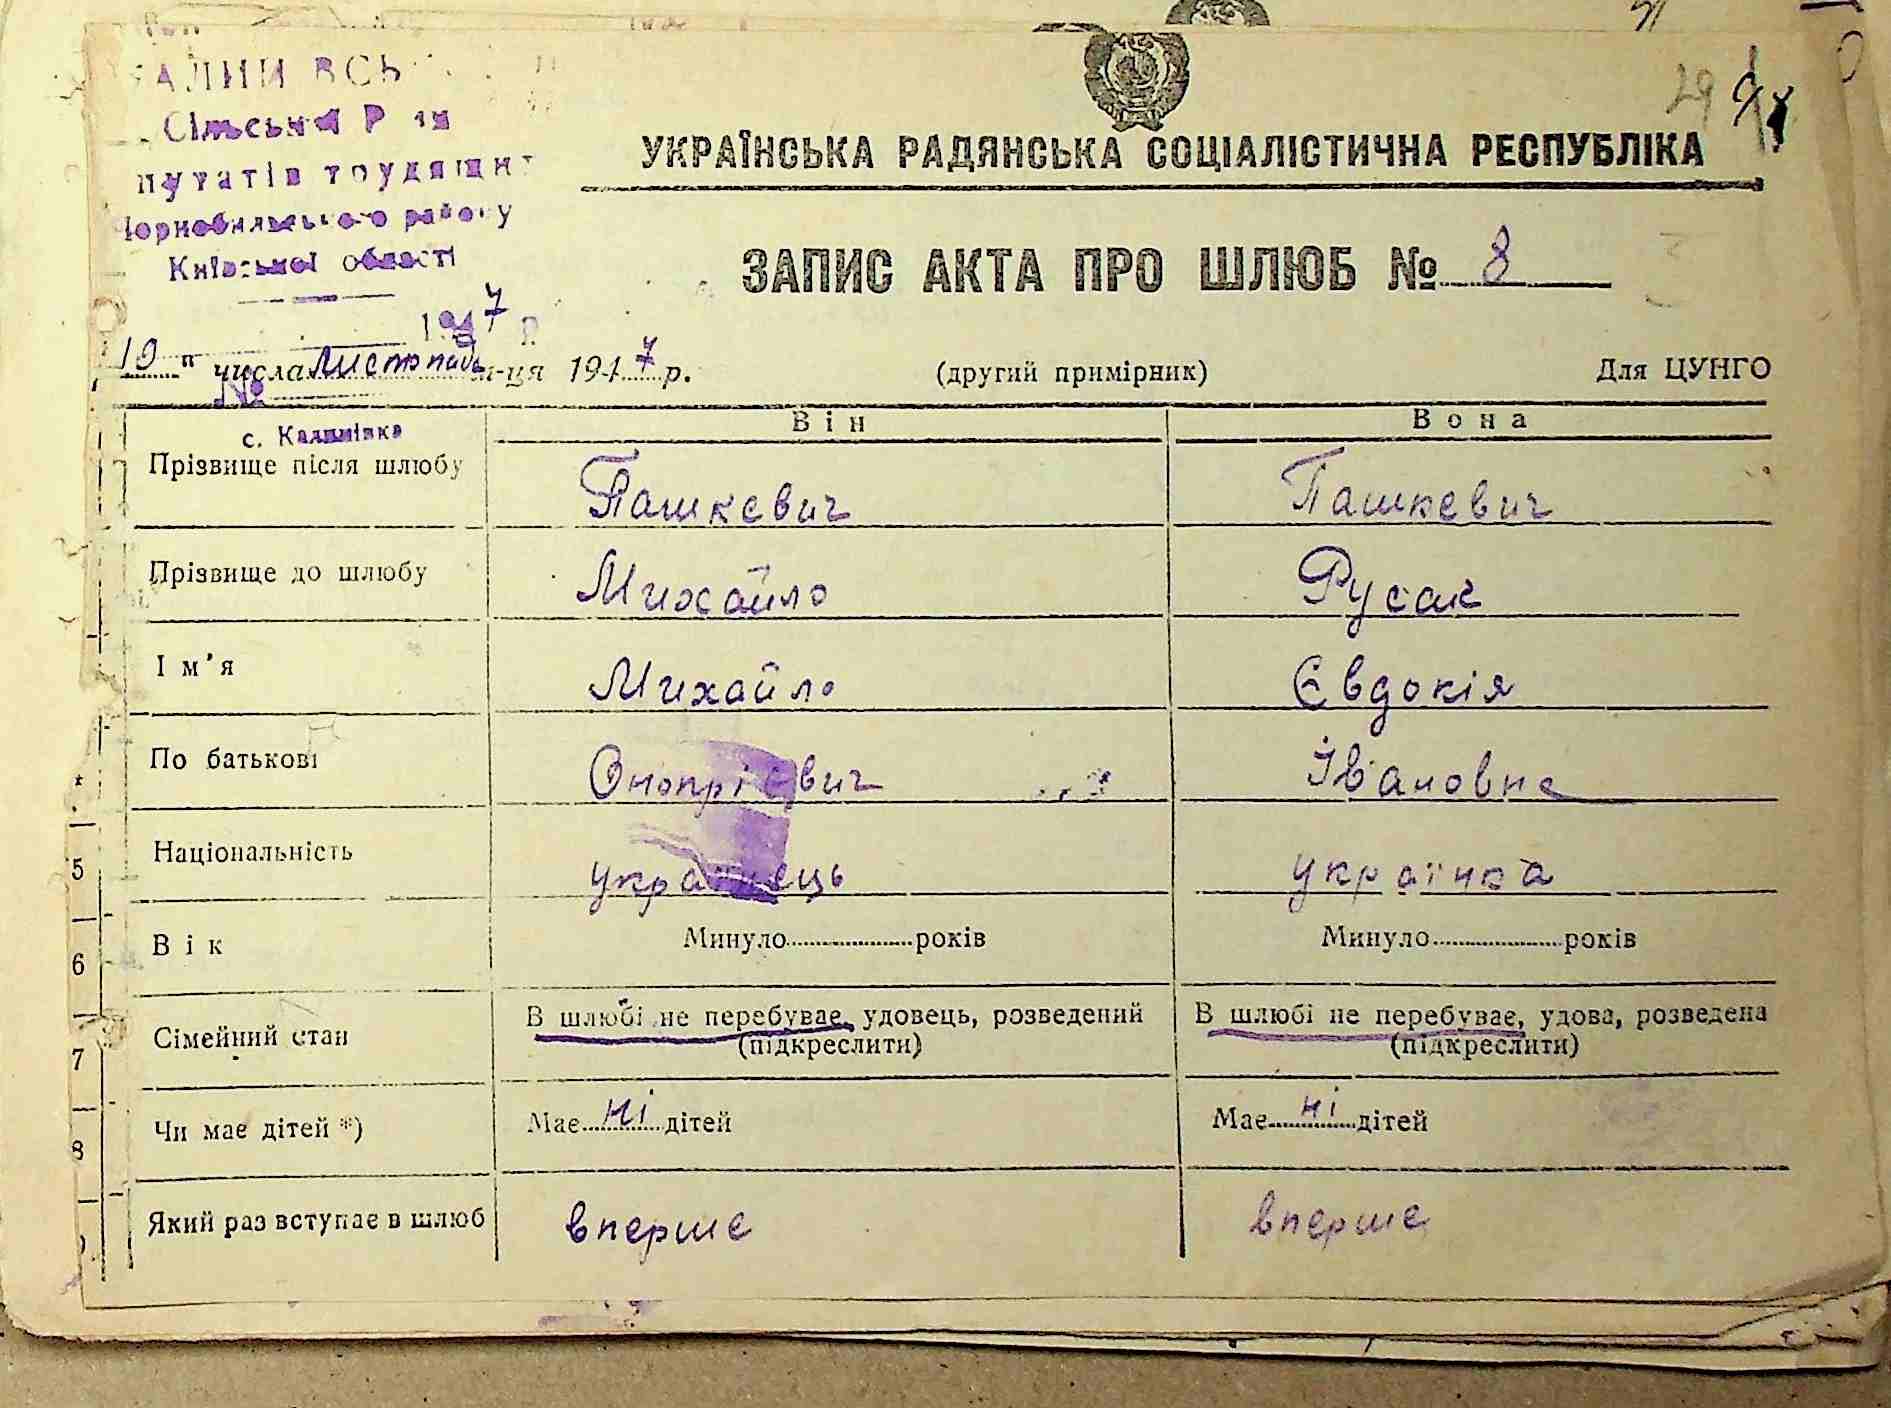 Сільська
путатів трудящих
Чорнобильського району
Київської області
1947 р.
УКРАЇНСЬКА РАДЯНСЬКА СОЦІАЛІСТИЧНА РЕСПУБЛІКА
ЗАПИС АКТА ПРО ШЛЮБ № 8
19 " числа листопада м-ця 1947 р. (другий примірник) Для ЦУНГО
№
с. Калинівка
Він Вона
Прізвище після шлюбу Пашкевич Пашкевич
Прізвище до шлюбу Михайло Русак
Ім'я Михайло Євдокія
По батькові Онопрієвич Івановна
5 Національність українець українка
6 Вік Минуло року Минуло років
7 Сімейний стан В шлюбі не перебуває, удовець, розведений В шлюбі не перебуває, удова, розведена
(підкреслити) (підкреслити)
8 Чи має дітей *) Має ні дітей Має ні дітей
Який раз вступає в шлюб вперше вперше